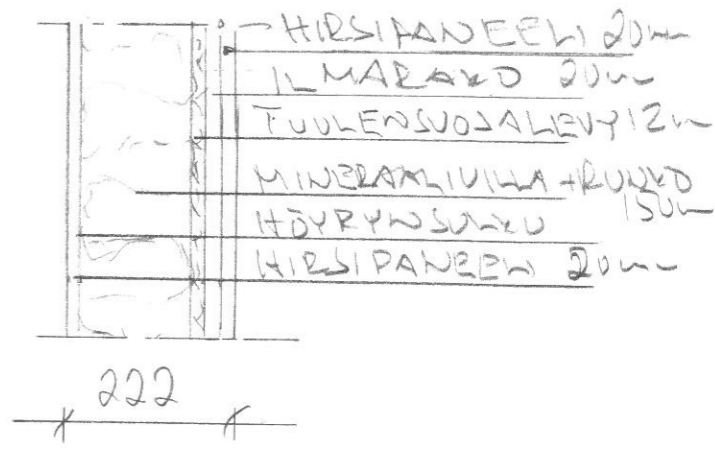 HIRSIPANEELI 20mm
ILMARAKO 20mm
TUULENSUOJALEVY 12m
MINERAALIVILLA + RUNKO
150m
HÖYRYNSULKU
HIRSIPANEELI 20mm
222